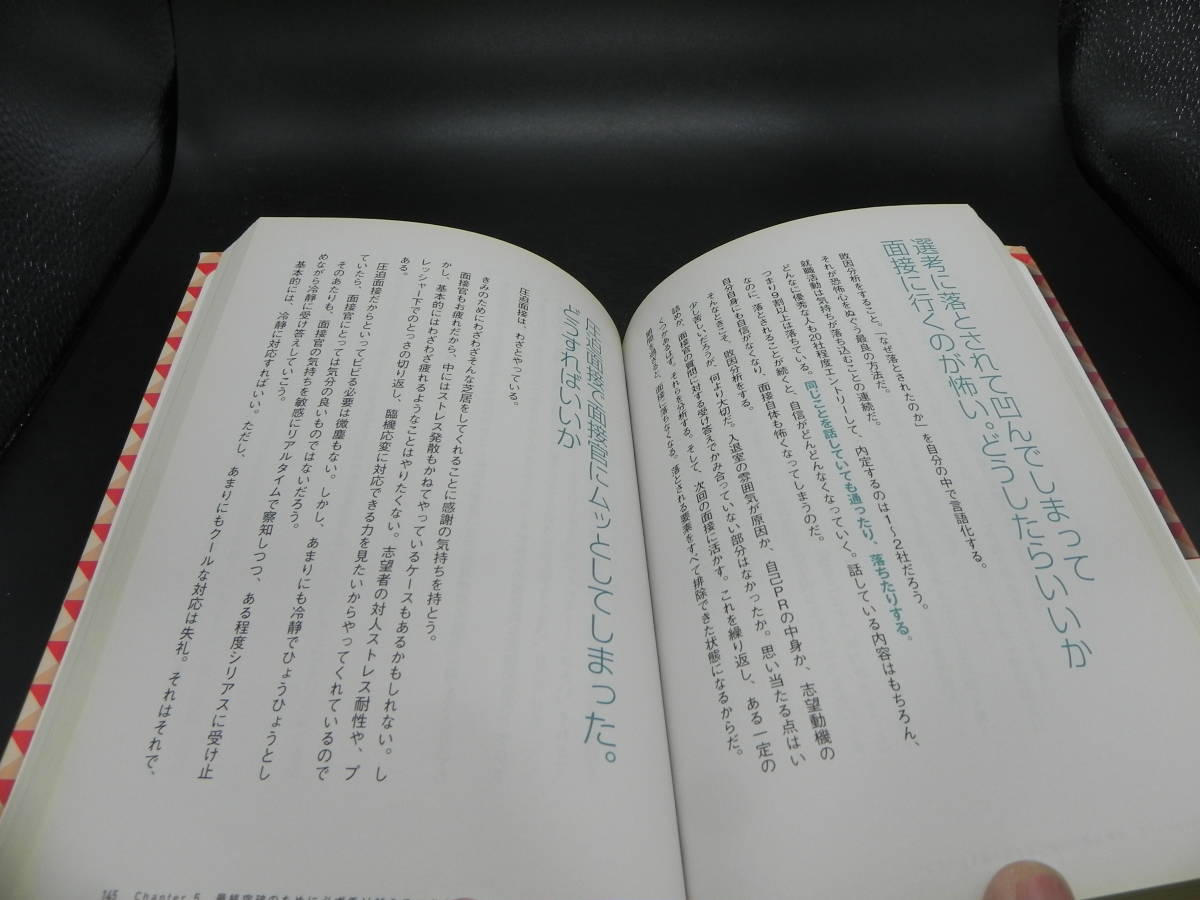 選考に落とされて凹んでしまって
面接に行くのが怖い。どうしたらいいか
敗因分析をすること。「なぜ落とされたのか」を自分の中で言語化する。
それが恐怖心をぬぐう最良の方法だ。
就職活動は気持ちが落ち込むことの連続だ。
どんなに優秀な人も20社程度エントリーして、内定するのは1〜2社だろう。
つまり9割以上は落ちている。同じことを話していても通ったり、落ちたりする。
なのに、落とされることが続くと、自信がどんどんなくなっていく。話している内容はもちろん、
自分自身にも自信がなくなり、面接自体も怖くなってしまうのだ。
そんなときこそ、敗因分析をする。
少し苦しいだろうが、何より大切だ。入退室の雰囲気が原因か、自己PRの中身か、志望動機の
詰めか、面接官の質問に対する受け答えでかみ合っていない部分はなかったか。思い当たる点はい
くつかあるはず。それらを分析する。そして、次回の面接に活かす。これを繰り返し、ある一定の
期間を過ぎると、面接し落ちなくなる。落とされる要素をすべて排除できた状態になるからだ。
圧迫面接で面接官にムッとしてしまった。
どうすればいいか
圧迫面接は、わざとやっている。
きみのためにわざわざそんな芝居をしてくれることに感謝の気持ちを持とう。
面接官もお疲れだから、中にはストレス発散もかねてやっているケースもあるかもしれない。し
かし、基本的にはわざわざ疲れるようなことはやりたくない。志望者の対人ストレス耐性や、プ
レッシャー下でのとっさの切り返し、臨機応変に対応できる力を見たいからやってくれているので
ある。
圧迫面接だからといってビビる必要は微塵もない。しかし、あまりにも冷静でひょうひょうとし
ていたら、面接官にとっては気分の良いものではないだろう。
そのあたりも、面接官の気持ちを敏感にリアルタイムで察知しつつ、ある程度シリアスに受け止
めながら冷静に受け答えしていこう。
基本的には、冷静に対応すればいい。ただし、あまりにもクールな対応は失礼。それはそれで、
145 Chapter 5